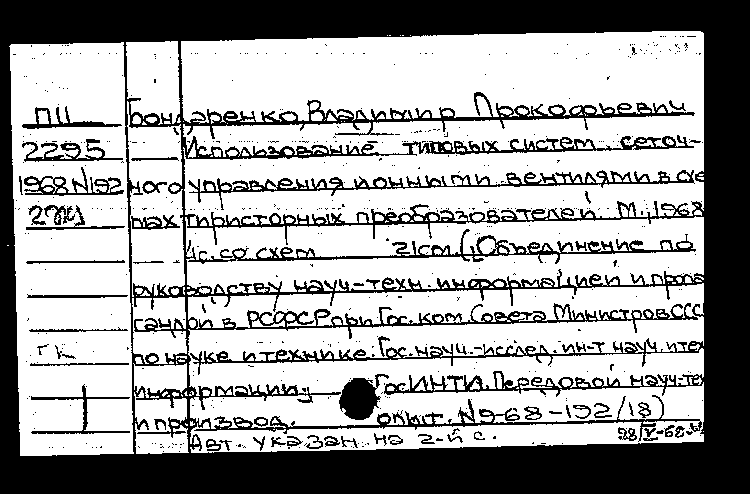 ПII Бондаренко, Владимир Прокофьевич
2295 Использование типовых систем сеточ-
1968 N192 ного управления ионными вентилями в схе
мах тиристорных преобразователей. М., 1968
4с. со схем 21см. (Объединение по
руководству науч-техн. информацией и пропа
гандой в РСФСР при Гос. ком. Совета Министров ССС
по науке и технике. Гос. науч.-исслед. ин-т науч. и тех
информации. ГосИНТИ. Передовой науч-тех
и производ. опыт. N9-68-192/18)
Авт. указан на 2-й с. 28/V-68